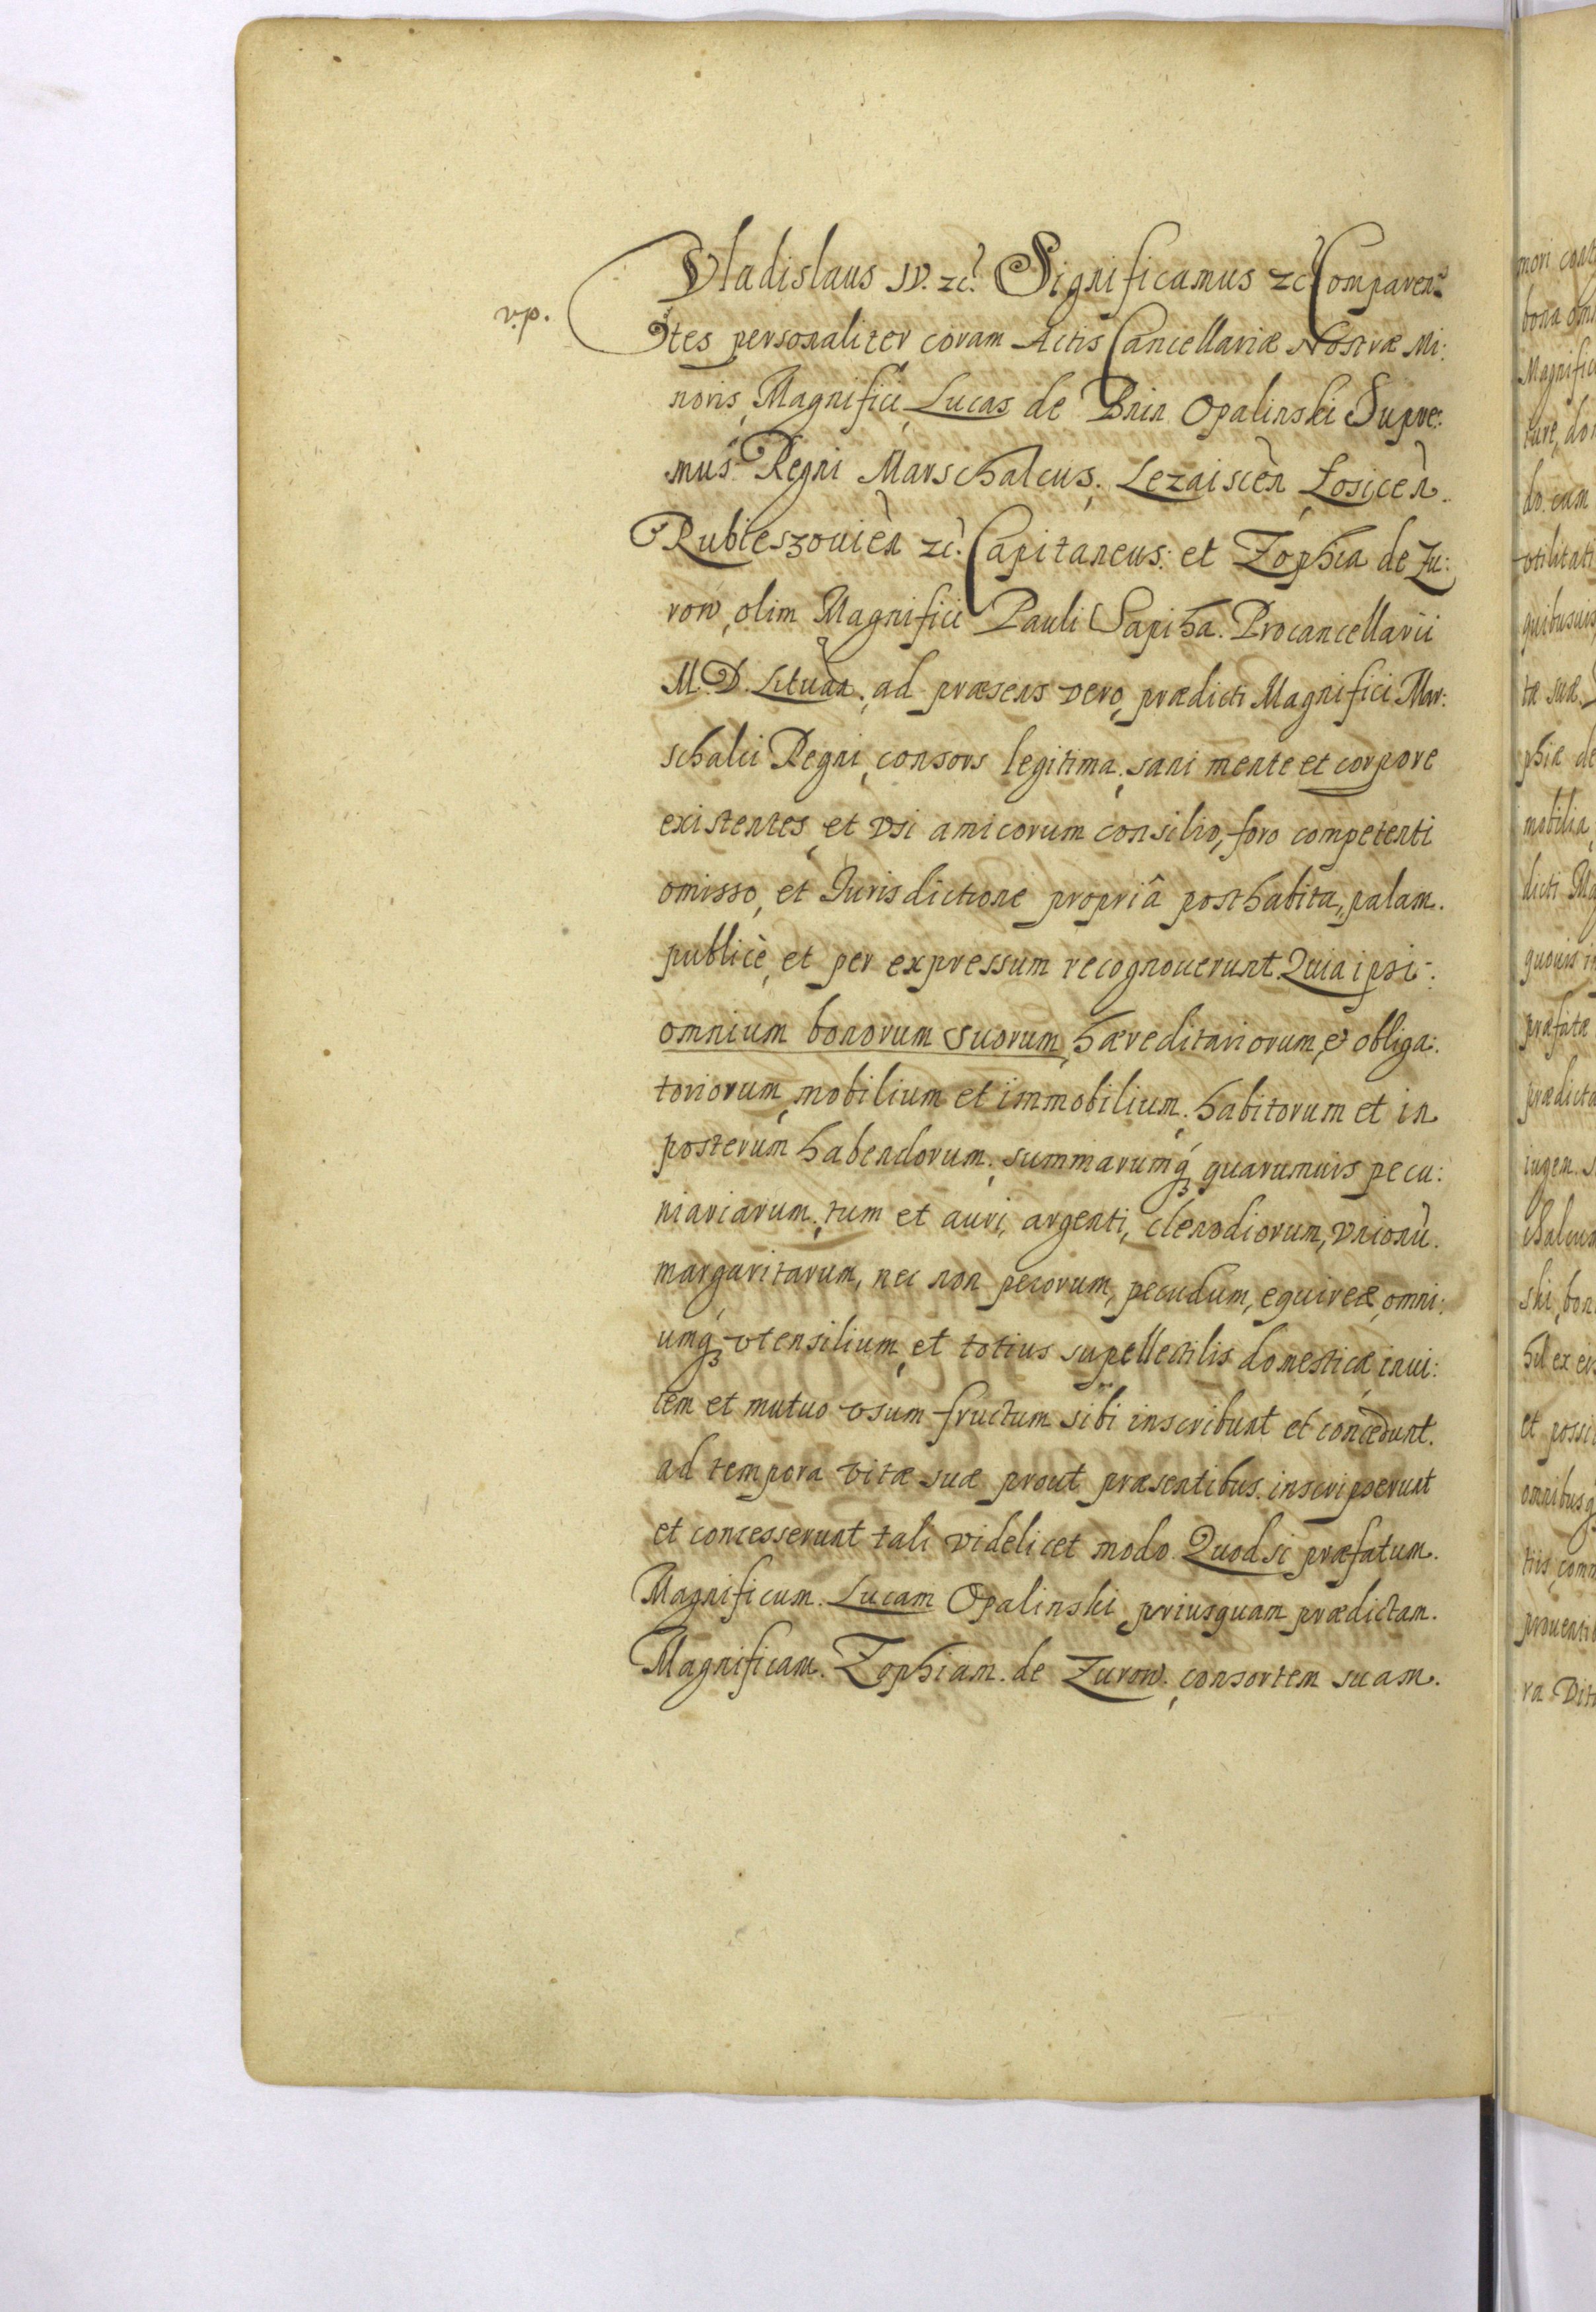 Vladislaus IV. zc. Significamus zc Comparen
v.p.
tes personaliter coram Actis Cancellariæ Nostræ Mi:
noris, Magnifici, Lucas de Bnin Opalinski Supre:
mus Regni Marschalcus, Lezaiscèn Łosicèn.
Rubieszouièn zc. Capitaneus: et Zophia de Zu:
row, olim Magnifici Pauli Sapiha. Procancellarii
M. D. Lituan. ad præsens vero, prædicti Magnifici Mar:
schalci Regni, consors legitima, sani mente et corpore
existentes, et vsi amicorum consilio, foro competenti
omisso, et Jurisdictione propriâ posthabita, palam.
publicè, et per expressum recognouerunt. Quia ipsi:
omnium bonorum suorum, hæreditariorum, et obliga:
toriorum, mobilium et immobilium, habitorum et in
posterum habendorum, summarumq́ꝫ quarumuis pecu:
niariarum, tum et auri, argenti, clenodiorum, vnionù.
margaritarum, nec non pecorum, pecudum, equireæ, omni:
umqꝫ vtensilium, et totius supellectilis domesticæ, inui:
cem et mutuo vsum fructum sibi inscribunt et concedunt.
ad tempora vitæ suæ prout præsentibus. inscripserunt
et concesserunt tali videlicet modo. Quod si præfatum.
Magnificum. Lucam Opalinski priusquam prædictam.
Magnificam. Zophiam. de Zurow. consortem suam.